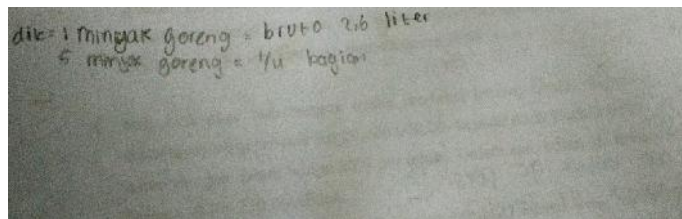 dik = 1 minyak goreng = bruto 2,6 liter
5 minyak goreng = 1/4 bagian